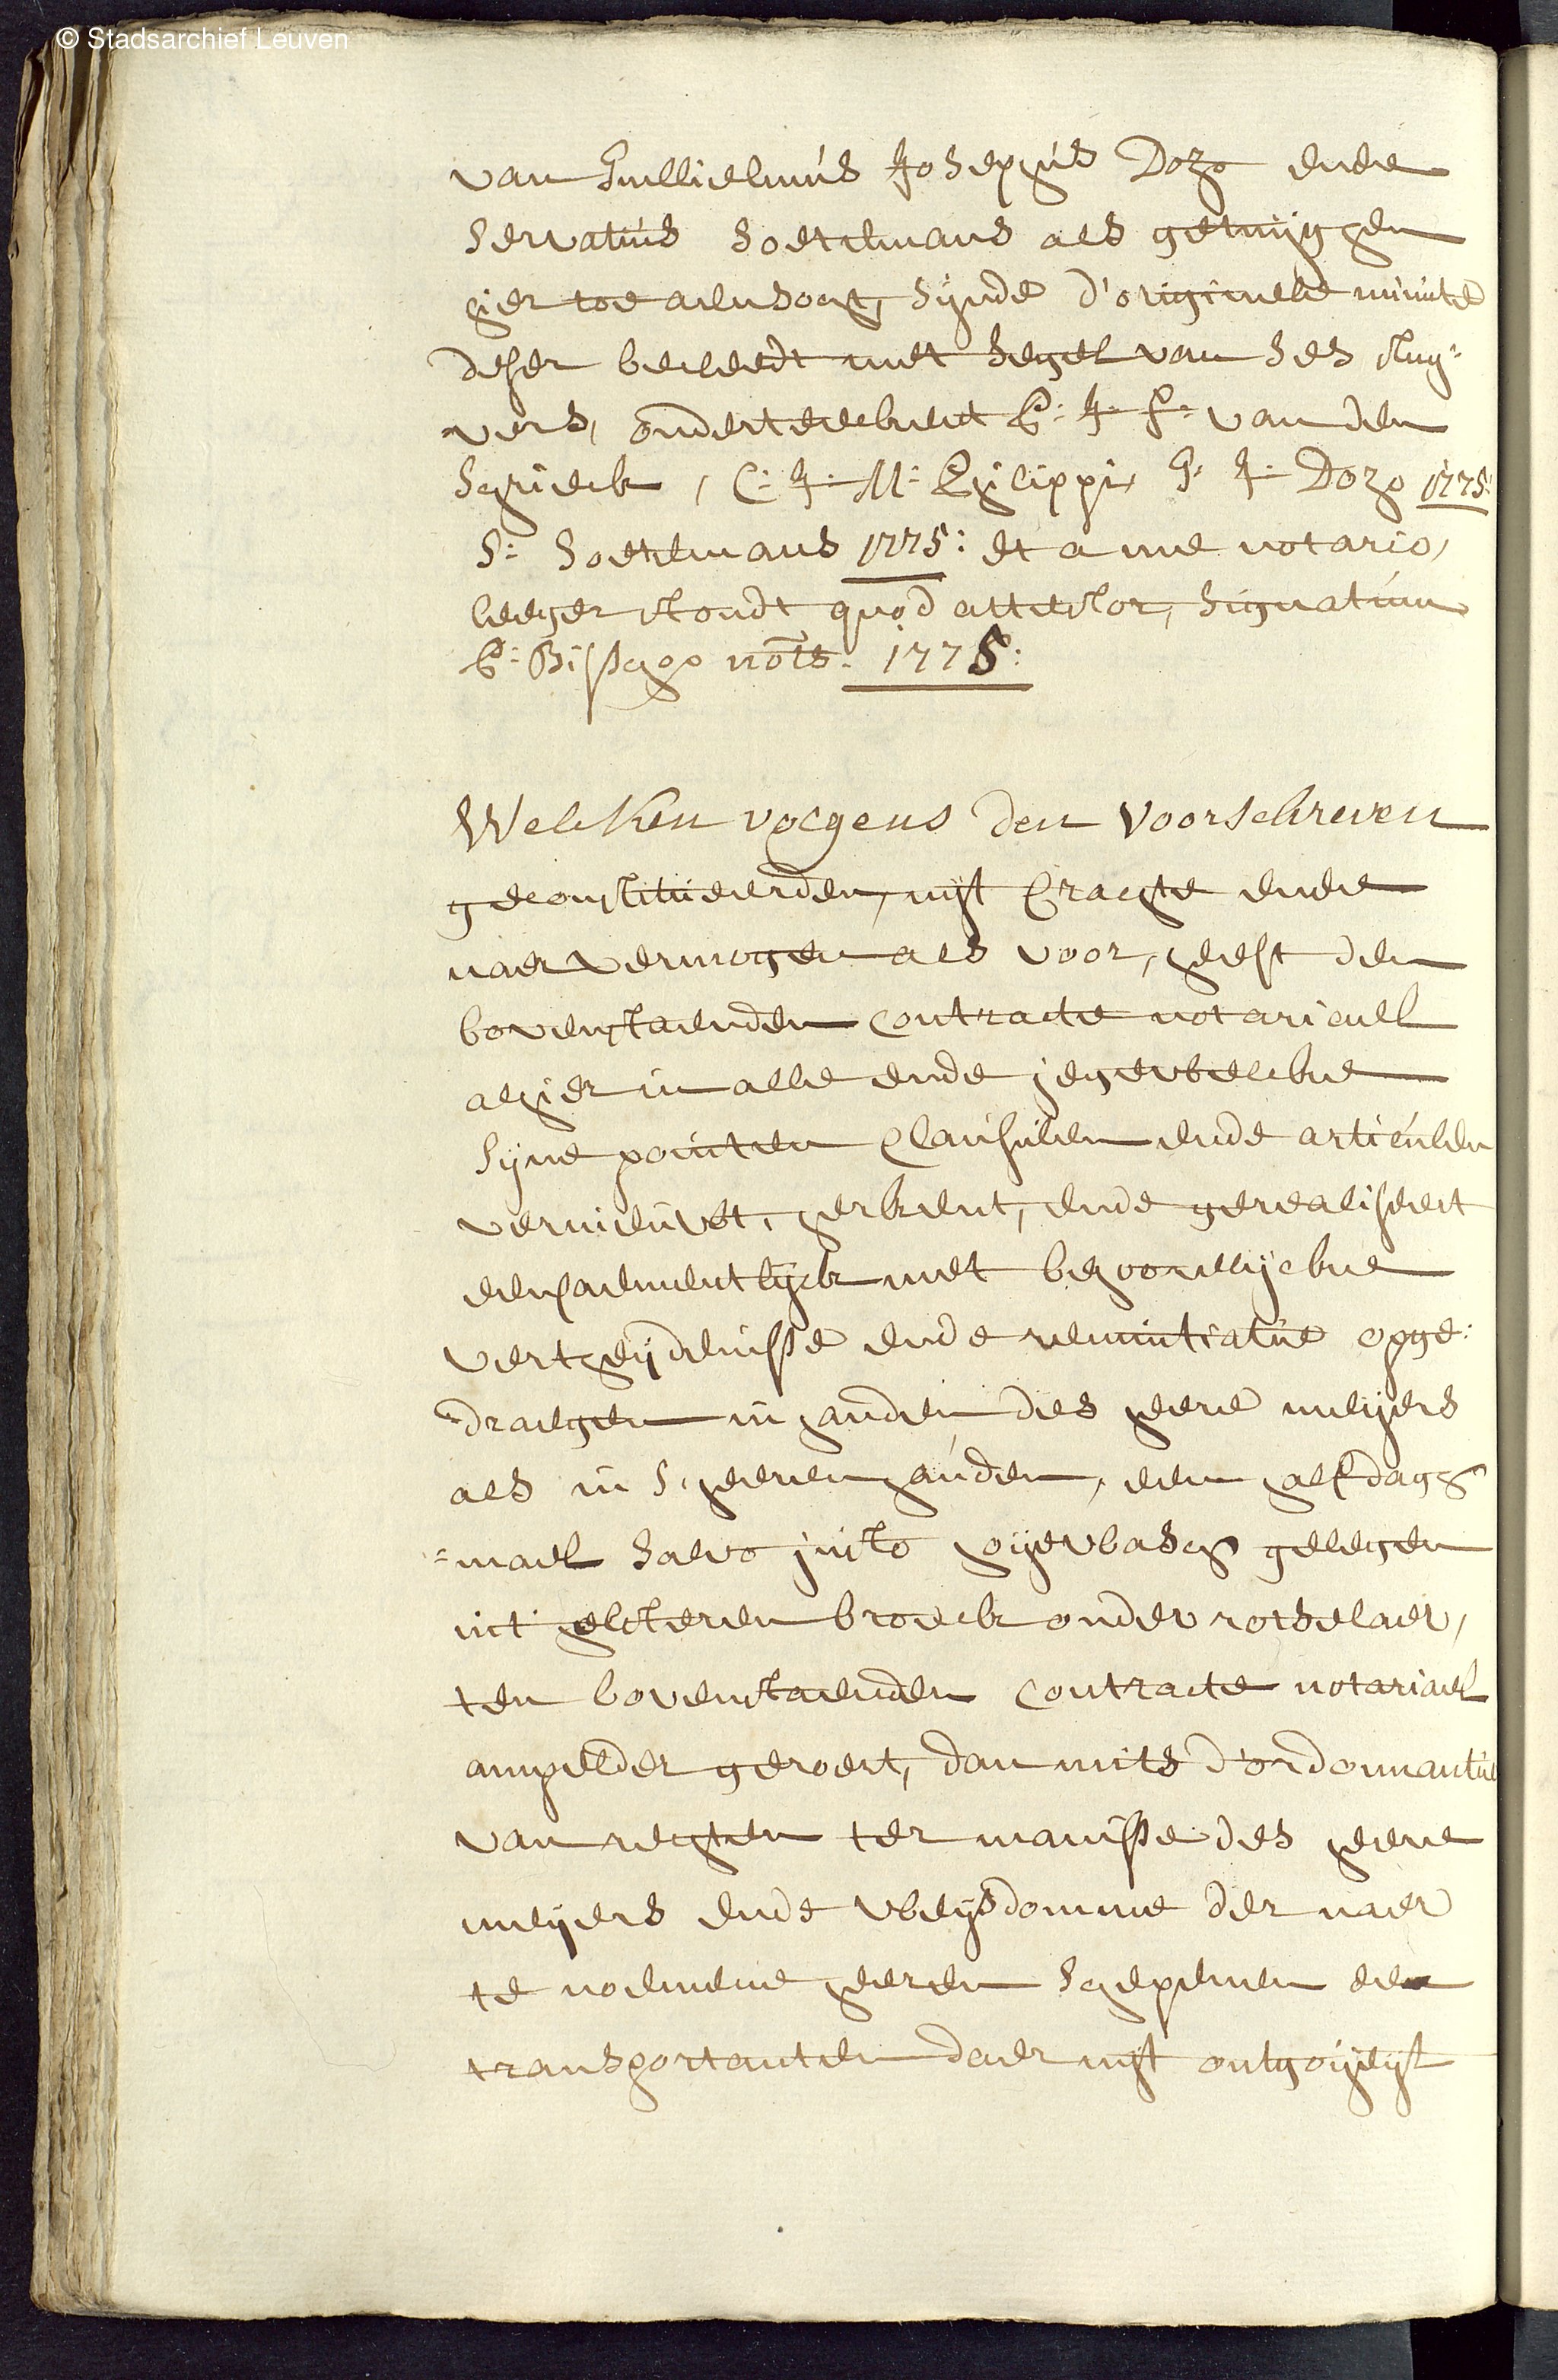 © Stadsarchief Leuven
van Guillielmus Josephus Dozo ende
Servatius Soetemans als getuijghen
hier toe aensocht, sijnde d'origineele minute
deser becleedt met segel van ses stuy=
=vers, onderteeckent P: J: F: van den
Schrieck, C: J: M: Philippi, G: J: Dozo 1775:
S: Soetemans 1775: et a me notario,
leeger stondt quod attestor, signatum
P: Bisschop nots. 1775:
Welken volgens den voorschreven
geconstitueerden, uijt Crachte ende
naer vermogen als voor, heeft den
bovenstaenden contracte notarieel
alhier in alle ende jegewelcke
sijne pointen Clausulen ende articulen
vernieuwt, herkent, ende gerealiseert
eensaementlijck met behoorelijcke
verthijdenisse ende renuntiatie opge=
=draegen in handen des heere meijers
als in s'heeren handen, een half dagh
=mael salvo justo hoijewbasch gelegen
int helsteren broeck onder rotselaer,
ten bovenstaenden contracte notariael
ampelder geroert, dan mits d'ordonnantie
van rechten ter manisse des heere
meijers ende wijsdomme der naer
te noemene heeren schepenen den
transportanten daer uijt onthoijt